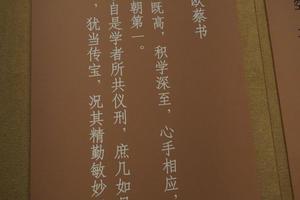 欧蔡书
既高，积学深至，心手相应，
朝第一。
自是学者所共仪刑，庶几如
，犹当传宝，况其精勤敏妙